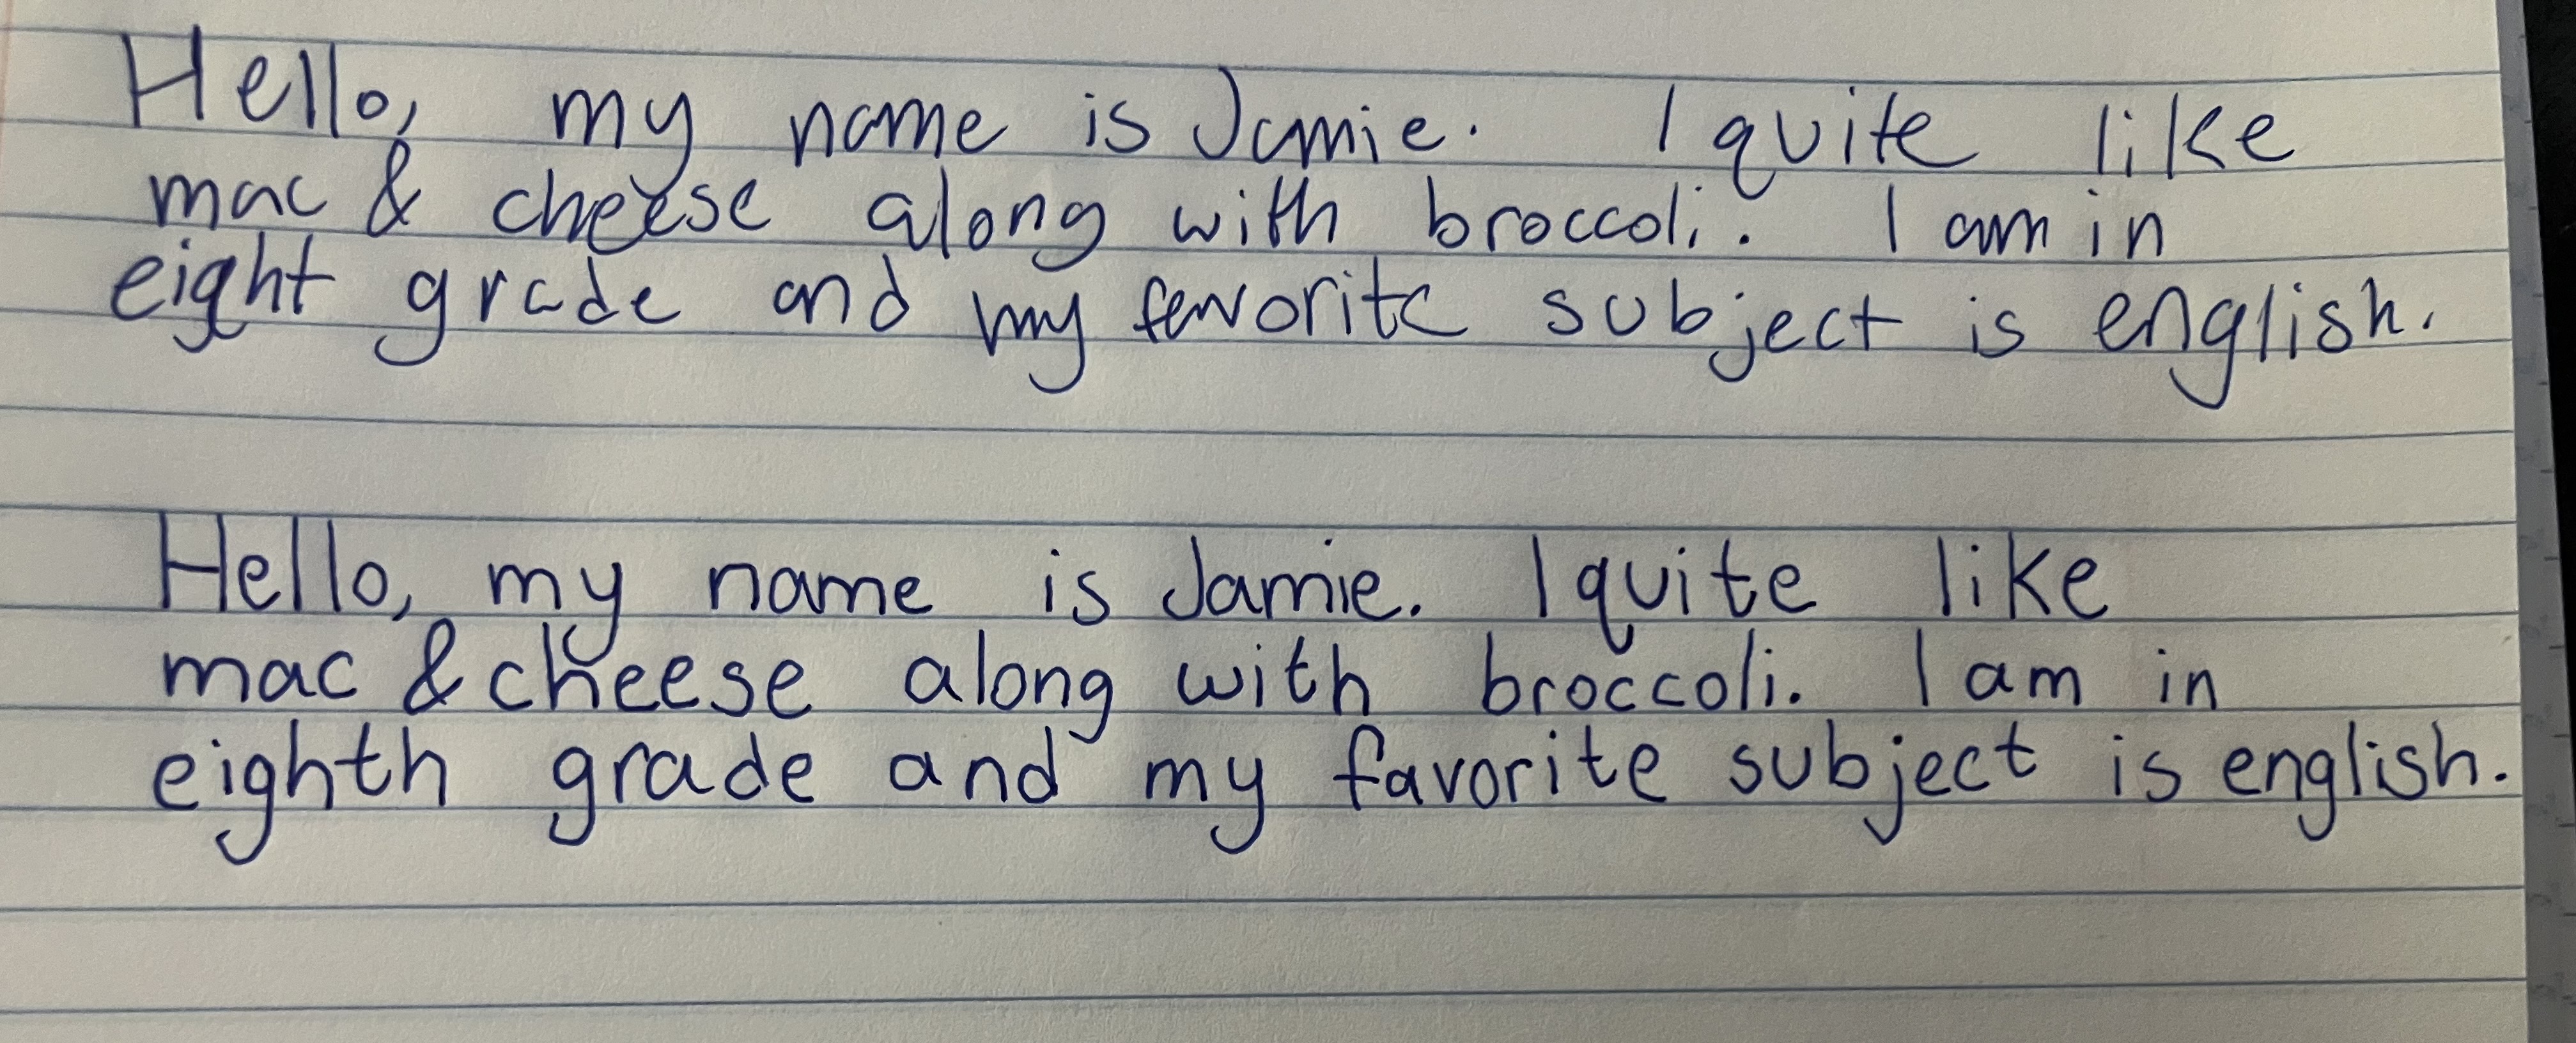 Hello, my name is Jamie. I quite like
mac & cheese along with broccoli. I am in
eight grade and my favorite subject is english.
Hello, my name is Jamie. I quite like
mac & cheese along with broccoli. I am in
eighth grade and my favorite subject is english.